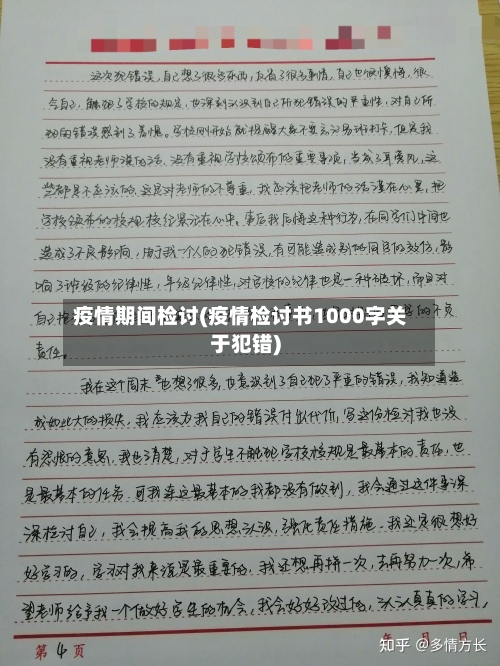 这次犯错误,自己想了很多东西,反省了很多事情,自己也很懊悔,很
令自己,触犯了学校的规定,也深刻认识到自己所犯错误的严重性,对自己所
犯的错误感到了羞愧。学校刚开始就提醒大家不要忘记易班打卡,但是我
没有重视老师讲的话,没有重视学校颁布的重要事项,当成了耳旁风,这
些都是不应该的。这是对老师的不尊重。我应该把老师的话谨在心里,把
学校颁布的校规校纪紧记在心中。事后我后悔这种行为,在同学们中间也
造成了不良影响,由于我一个人的犯错误,有可能造成别的同学的效仿,影
响了班级的纪律性,年级纪律性,对学校的纪律也是一种破坏,而且对
疫情期间检讨(疫情检讨书1000字关
于犯错)
责任。
我在这个周末也想了很多,也意识到了自己犯了严重的错误,我知道造
成如此大的损失,我应该为我自己的错误付出代价,写这份检讨我也没
有怨恨的意思,我也了清楚,对于学生不触犯学校校规是最基本的责任,也
是最基本的任务,可我连这最基本的我都没有做到,我会通过这件事深
深检讨自己,我会提高我的思想认识,强化责任措施。我还是很想好
好学习的,学习对我来说是最重要的,我还想再拼一次,去再努力一次,希
望老师给予我一个做好学生的机会,我会好好改过的,认认真真的学习,
第 4 页
年 月 日
知乎 @多情方长